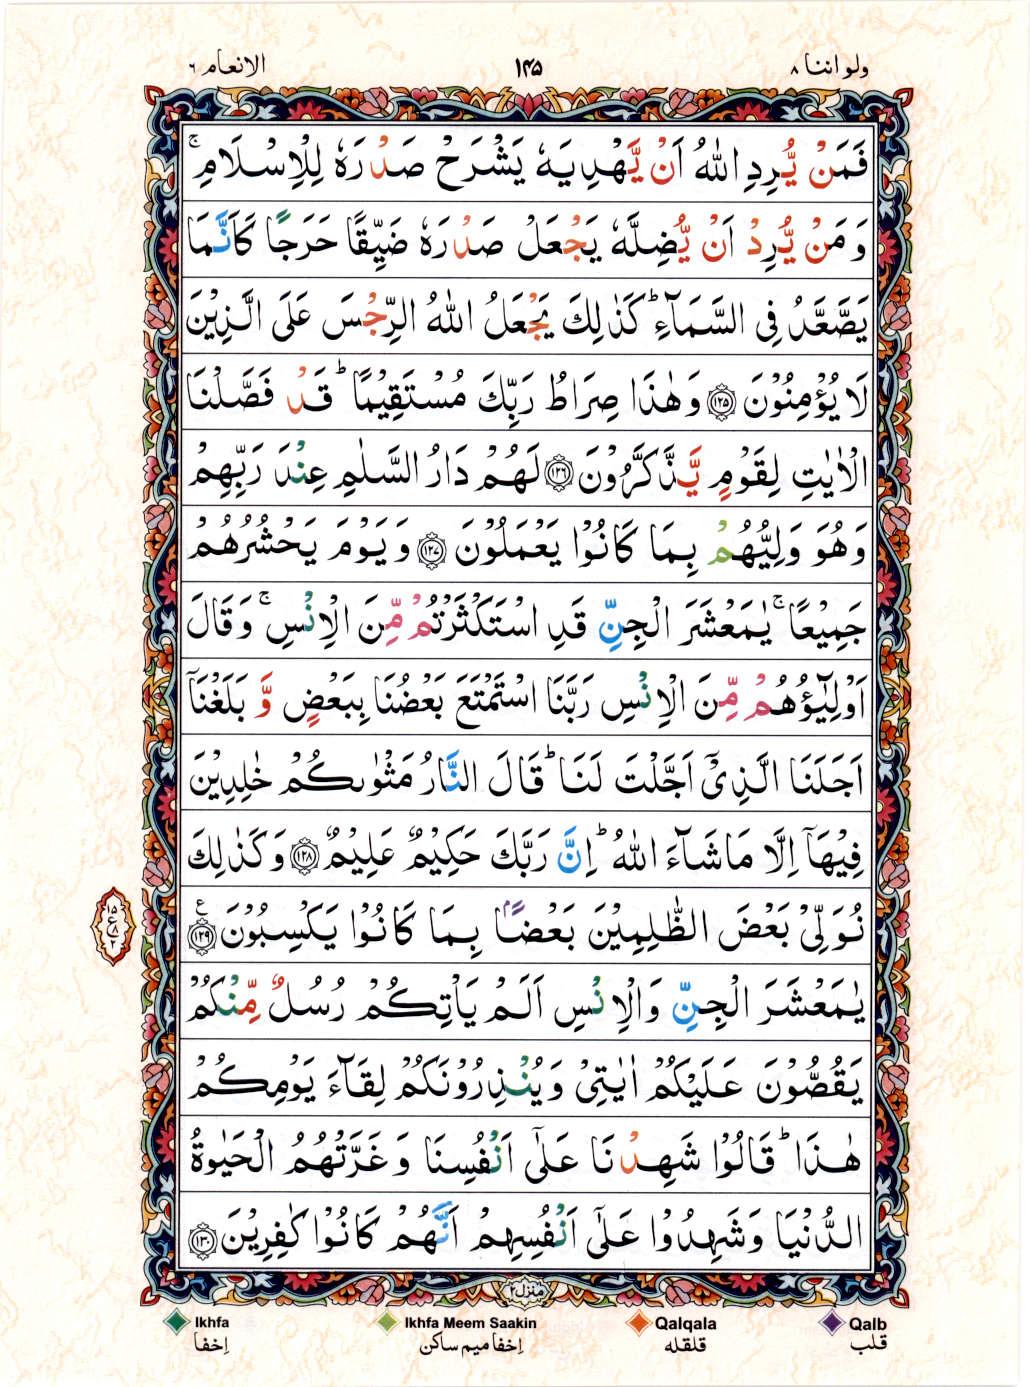 ولو اننا ۸
۱۴۵
الانعام ٦
فَمَنْ يُّرِدِ اللّٰهُ اَنْ يَّهْدِيَهٗ يَشْرَحْ صَدْرَهٗ لِلْاِسْلَامِ ۚ
وَمَنْ يُّرِدْ اَنْ يُّضِلَّهٗ يَجْعَلْ صَدْرَهٗ ضَيِّقًا حَرَجًا كَاَنَّمَا
يَصَّعَّدُ فِى السَّمَآءِ ؕ كَذٰلِكَ يَجْعَلُ اللّٰهُ الرِّجْسَ عَلَى الَّذِيْنَ
لَا يُؤْمِنُوْنَ ﴿۱۲۵﴾ وَهٰذَا صِرَاطُ رَبِّكَ مُسْتَقِيْمًا ؕ قَدْ فَصَّلْنَا
الْاٰيٰتِ لِقَوْمٍ يَّذَّكَّرُوْنَ ﴿۱۲٦﴾ لَهُمْ دَارُ السَّلٰمِ عِنْدَ رَبِّهِمْ
وَهُوَ وَلِيُّهُمْ بِمَا كَانُوْا يَعْمَلُوْنَ ﴿۱۲۷﴾ وَيَوْمَ يَحْشُرُهُمْ
جَمِيْعًا ۚ يٰمَعْشَرَ الْجِنِّ قَدِ اسْتَكْثَرْتُمْ مِّنَ الْاِنْسِ ۚ وَقَالَ
اَوْلِيٰٓؤُهُمْ مِّنَ الْاِنْسِ رَبَّنَا اسْتَمْتَعَ بَعْضُنَا بِبَعْضٍ وَّ بَلَغْنَاۤ
اَجَلَنَا الَّذِىْۤ اَجَّلْتَ لَنَا ؕ قَالَ النَّارُ مَثْوٰىكُمْ خٰلِدِيْنَ
فِيْهَاۤ اِلَّا مَا شَآءَ اللّٰهُ ؕ اِنَّ رَبَّكَ حَكِيْمٌ عَلِيْمٌ ﴿۱۲۸﴾ وَكَذٰلِكَ
نُوَلِّىْ بَعْضَ الظّٰلِمِيْنَ بَعْضًاۢ بِمَا كَانُوْا يَكْسِبُوْنَ ﴿۱۲۹﴾ ع
يٰمَعْشَرَ الْجِنِّ وَالْاِنْسِ اَلَمْ يَاْتِكُمْ رُسُلٌ مِّنْكُمْ
يَقُصُّوْنَ عَلَيْكُمْ اٰيٰتِىْ وَيُنْذِرُوْنَكُمْ لِقَآءَ يَوْمِكُمْ
هٰذَا ؕ قَالُوْا شَهِدْنَا عَلٰٓى اَنْفُسِنَا وَغَرَّتْهُمُ الْحَيٰوةُ
الدُّنْيَا وَشَهِدُوْا عَلٰٓى اَنْفُسِهِمْ اَنَّهُمْ كَانُوْا كٰفِرِيْنَ ﴿۱۳۰﴾
منزل ۲
Ikhfa
Ikhfa Meem Saakin
Qalqala
Qalb
اِخفا
اِخفا میم ساکن
قلقله
قلب